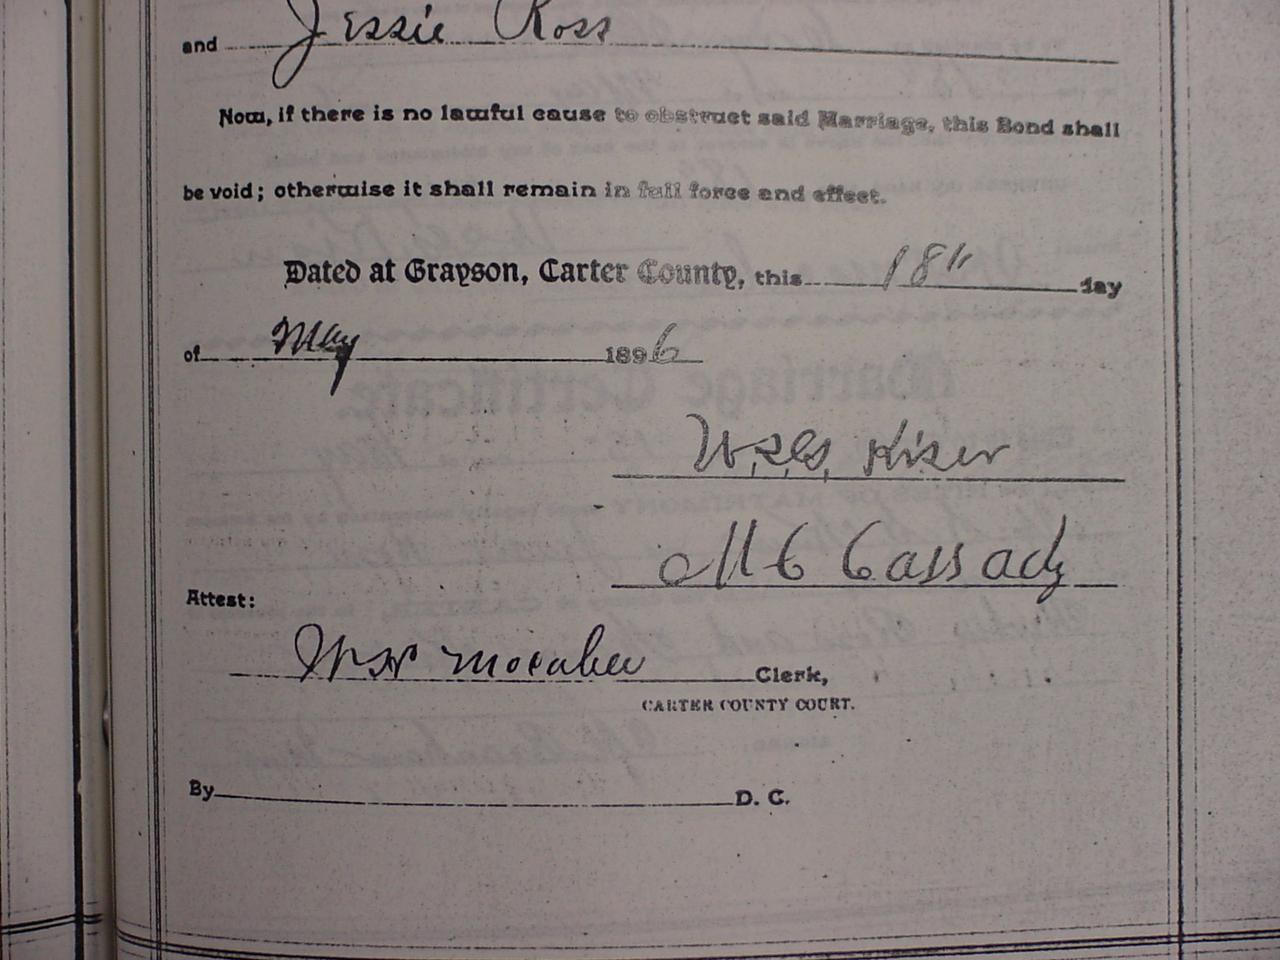 and Jessie Ross
Now, if there is no lawful cause to obstruct said Marriage, this Bond shall
be void; otherwise it shall remain in full force and effect.
Dated at Grayson, Carter County, this 18" day
of May 1896
Kiser
M C Cassady
Attest:
Clerk,
CARTER COUNTY COURT.
By D. C.